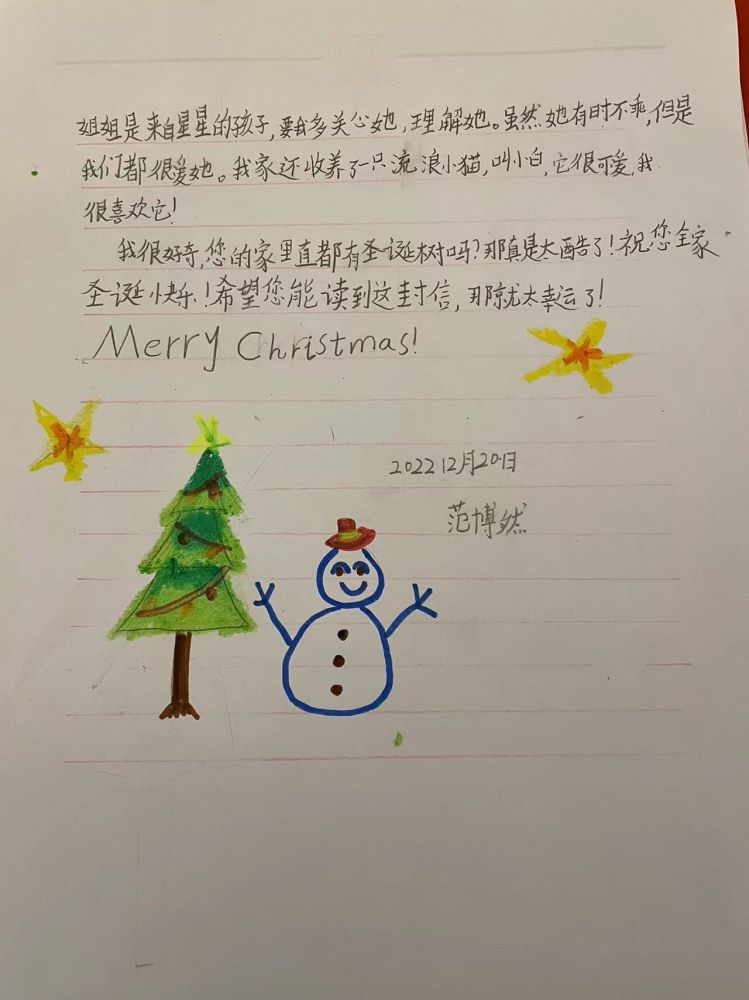 姐姐是来自星星的孩子,要我多关心她,理解她。虽然她有时不乖,但是
我们都很爱她。我家还收养了一只流浪小猫,叫小白,它很可爱,我
很喜欢它!
我很好奇,您的家里直都有圣诞树吗?那真是太酷了!祝您全家
圣诞快乐!希望您能读到这封信,那就太幸运了!
Merry Christmas!
2022 12月20日
范博然